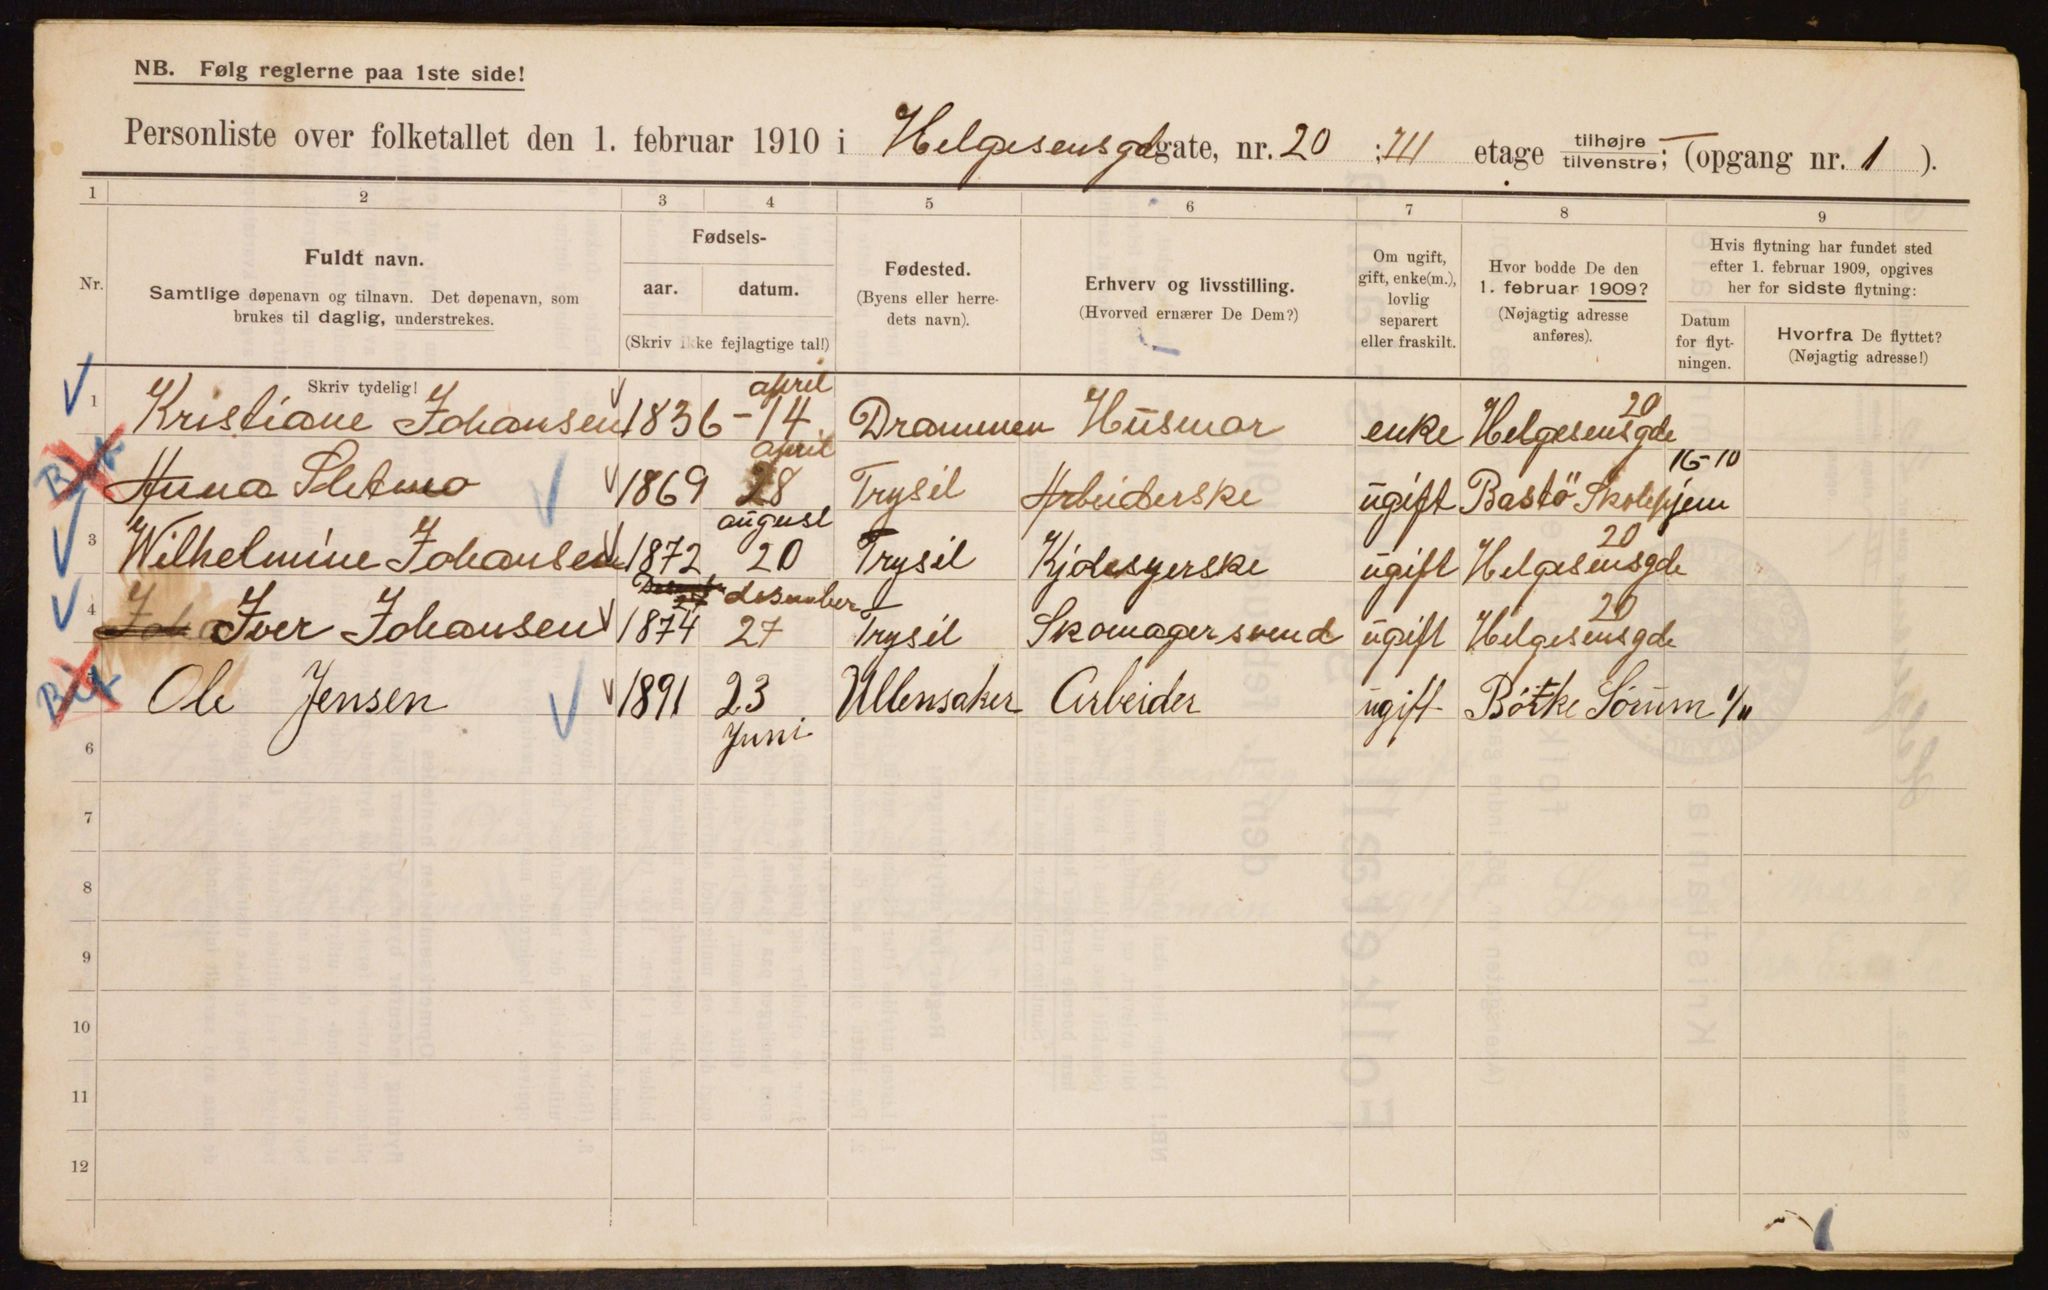 NB. Følg reglerne paa 1ste side!
Personliste over folketallet den 1. februar 1910 i Helgesensgd gate, nr. 20 : III etage tilhøjre/tilvenstre; (opgang nr. 1 ).
1 2 3 4 5 6 7 8 9
Nr.
Fuldt navn.
Samtlige døpenavn og tilnavn. Det døpenavn, som
brukes til daglig, understrekes.
Skriv tydelig!
Fødsels-
aar. datum.
(Skriv ikke fejlagtige tal!)
Fødested.
(Byens eller herre-
dets navn).
Erhverv og livsstilling.
(Hvorved ernærer De Dem?)
Om ugift,
gift, enke(m.),
lovlig
separert
eller fraskilt.
Hvor bodde De den
1. februar 1909?
(Nøjagtig adresse
anføres).
Hvis flytning har fundet sted
efter 1. februar 1909, opgives
her for sidste flytning:
Datum
for flyt-
ningen.
Hvorfra De flyttet?
(Nøjagtig adresse!)
1 Kristiane Johansen 1836 - 14 april Drammen Husmor enke Helgesensgde 20
Anna Sletmo 1869 28 april Trysil Arbeiderske ugift Bastö Skolehjem 16-10
3 Wilhelmine Johansen 1872 20 august Trysil Kjolesyerske ugift Helgesensgde 20
4 Iver Johansen 1874 27 desember Trysil Skomagersvend ugift Helgesensgde 20
Ole Jensen 1891 23 Juni Ullensaker Arbeider ugift Børke Sørum 1/11
6
7
8
9
10
11
12